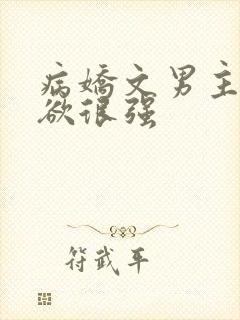 病嬌文男主
欲很强
符武平